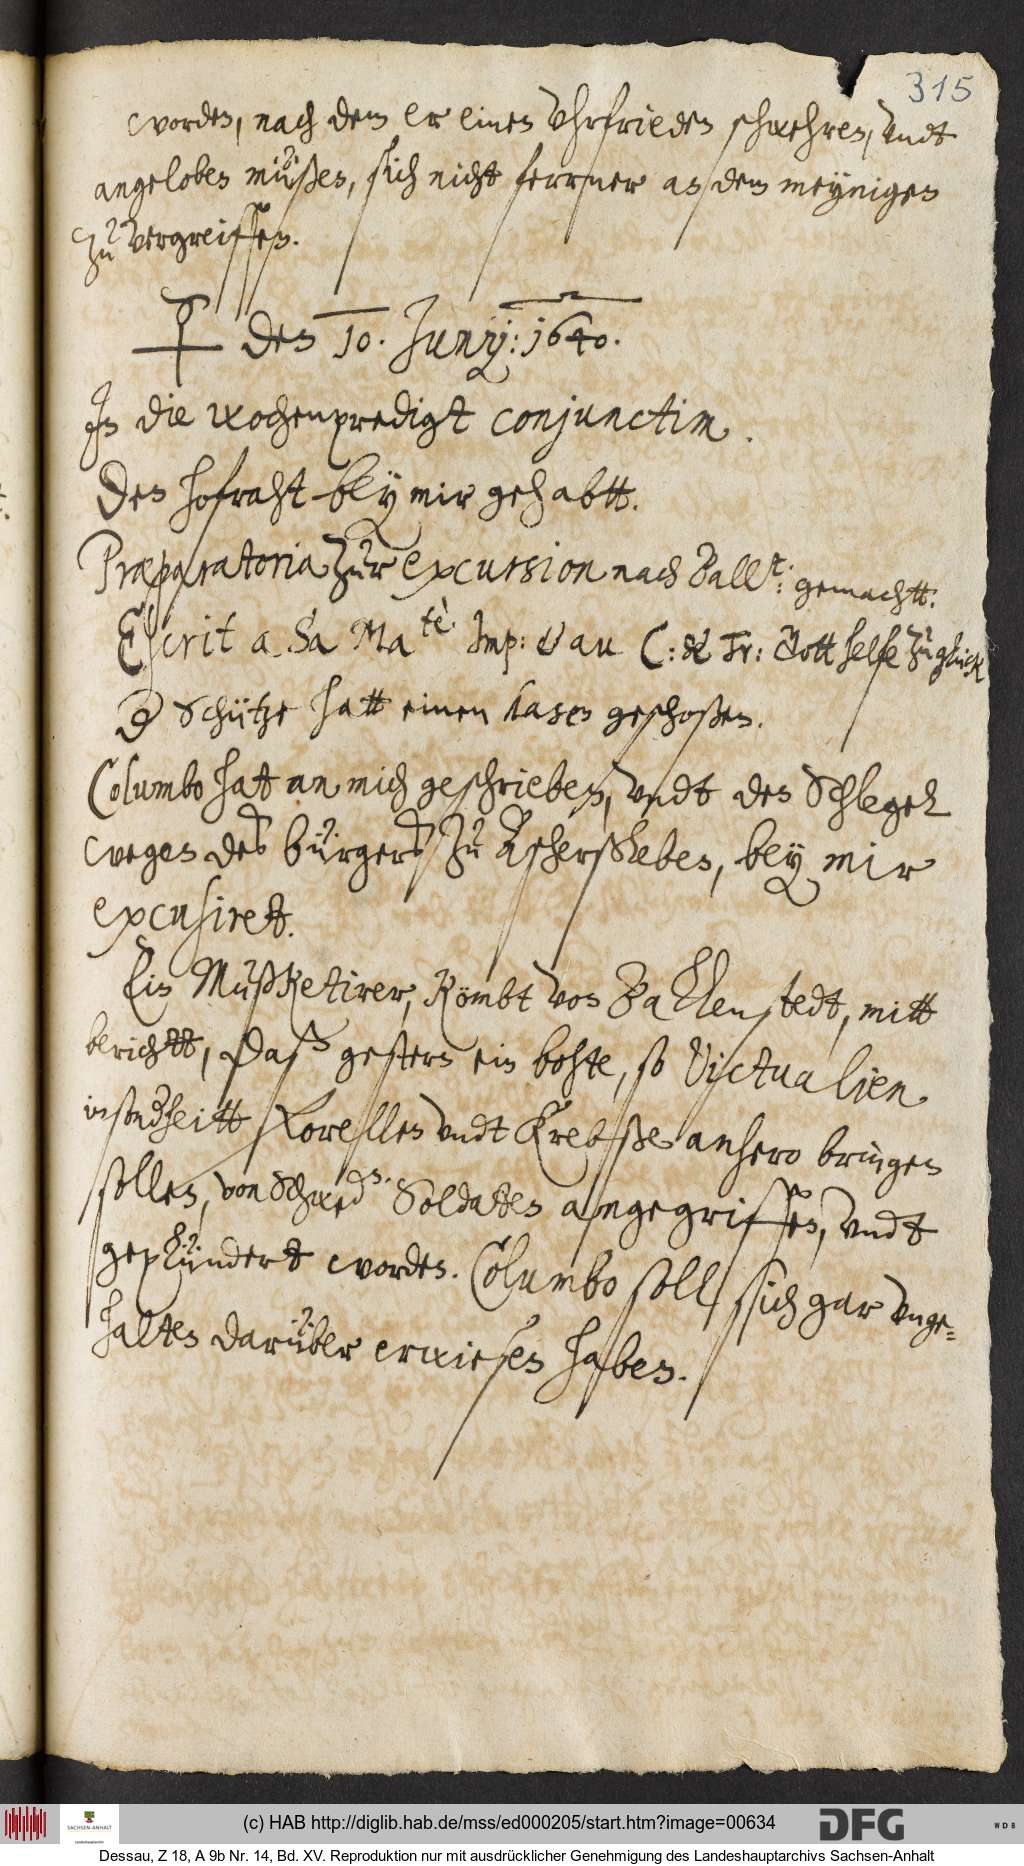 315
worden, nach dem er einen Vhrfrieden schwehren, vndt
angeloben müßen, sich nicht ferrner an dem meynigen
zu vergreiffen.
☿ den 10. Junij: 1640.
In die wochenpredigt conjunctim.
Den hofraht bey mir gehabtt.
Præparatoria zur excursion nach Ball:t gemachtt.
Escrit a Sa Ma.tè Imp: & au C: de Tr: Gott helfe zu glück
Schütze hatt einen hasen geschoßen.
Columbo hat an mich geschrieben, vndt den Schlegel
wegen des bürgers zu Ascherßleben, bey mir
excusiret.
Ein Mußketirer, kömbt von Ballenstedt, mitt
berichtt, daß gestern ein bohte, so Victualien
insonderheitt Forellen vndt Krebße anhero bringen
sollen, von Schwed:n Soldaten angegriffen, vndt
geplündert worden. Columbo soll sich gar vnge=
halten darüber erwiesen haben.
(c) HAB http://diglib.hab.de/mss/ed000205/start.htm?image=00634
SACHSEN-ANHALT
Landeshauptarchiv
DFG
WDB
Dessau, Z 18, A 9b Nr. 14, Bd. XV. Reproduktion nur mit ausdrücklicher Genehmigung des Landeshauptarchivs Sachsen-Anhalt